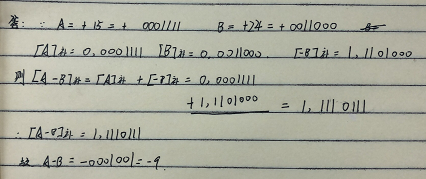 答: ∵ A = +15 = + 0001111 B = +24 = +0011000
[A]补 = 0,0001111 [B]补 = 0,0011000. [-B]补 = 1,1101000
则 [A-B]补 = [A]补 + [-B]补 = 0,0001111
+1,1101000 = 1,1110111
∴ [A-B]补 = 1,1110111
故 A-B = -0001001 = -9